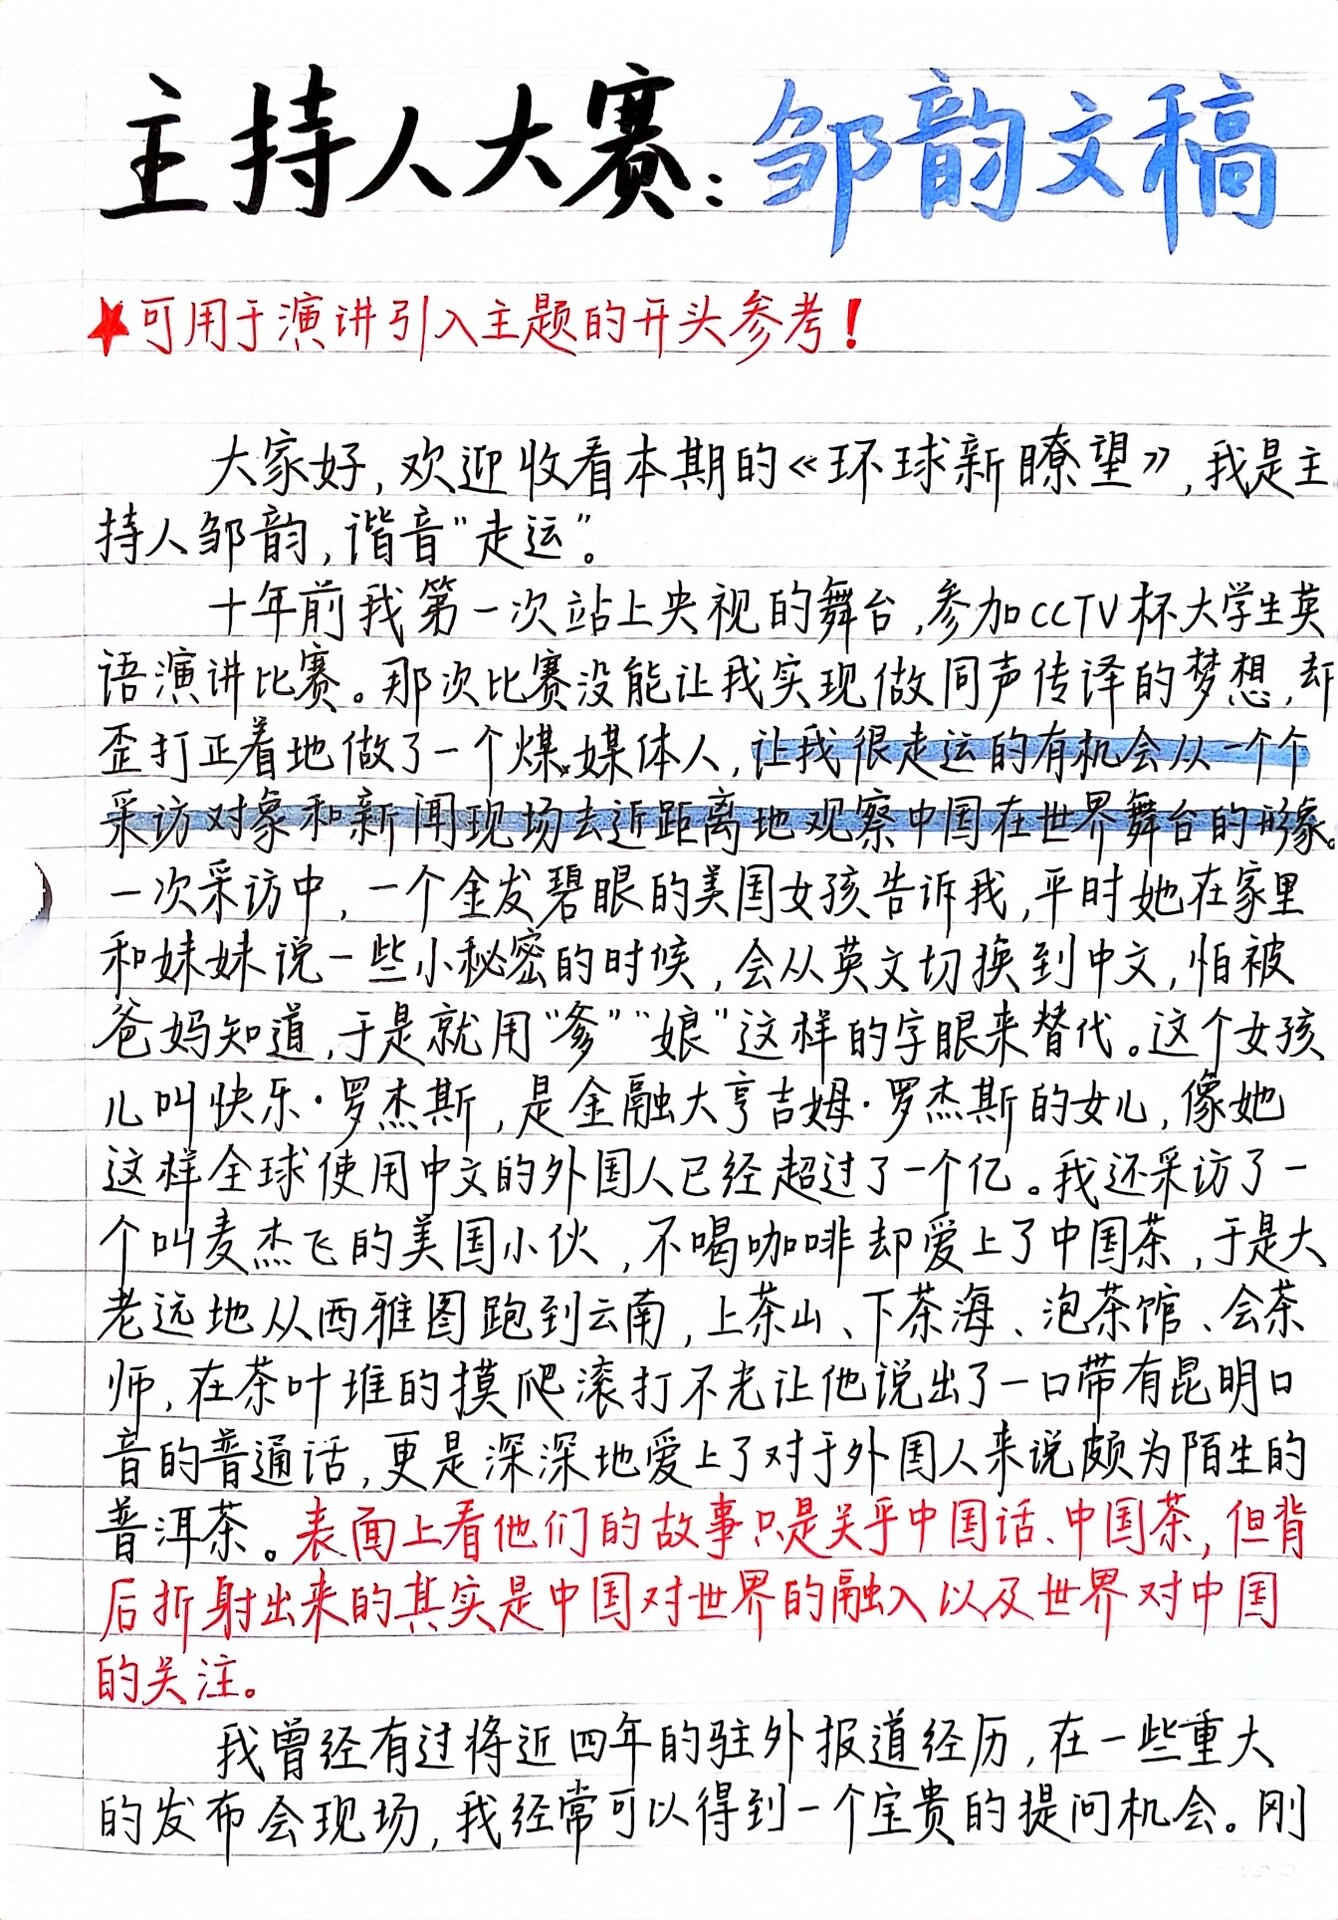 主持人大赛:邹韵文稿
★可用于演讲引入主题的开头参考!
大家好,欢迎收看本期的《环球新瞭望》,我是主
持人邹韵,谐音"走运"。
十年前我第一次站上央视的舞台,参加CCTV杯大学生英
语演讲比赛。那次比赛没能让我实现做同声传译的梦想,却
歪打正着地做了一个煤媒体人,让我很走运的有机会从一个个
采访对象和新闻现场去近距离地观察中国在世界舞台的形象。
一次采访中,一个金发碧眼的美国女孩告诉我,平时她在家里
和妹妹说一些小秘密的时候,会从英文切换到中文,怕被
爸妈知道,于是就用"爹""娘"这样的字眼来替代。这个女孩
儿叫快乐·罗杰斯,是金融大亨吉姆·罗杰斯的女儿,像她
这样全球使用中文的外国人已经超过了一个亿。我还采访了一
个叫麦杰飞的美国小伙,不喝咖啡却爱上了中国茶,于是大
老远地从西雅图跑到云南,上茶山、下茶海、泡茶馆、会茶
师,在茶叶堆的摸爬滚打不光让他说出了一口带有昆明口
音的普通话,更是深深地爱上了对于外国人来说颇为陌生的
普洱茶。表面上看他们的故事只是关乎中国话、中国茶,但背
后折射出来的其实是中国对世界的融入以及世界对中国
的关注。
我曾经有过将近四年的驻外报道经历,在一些重大
的发布会现场,我经常可以得到一个宝贵的提问机会。刚